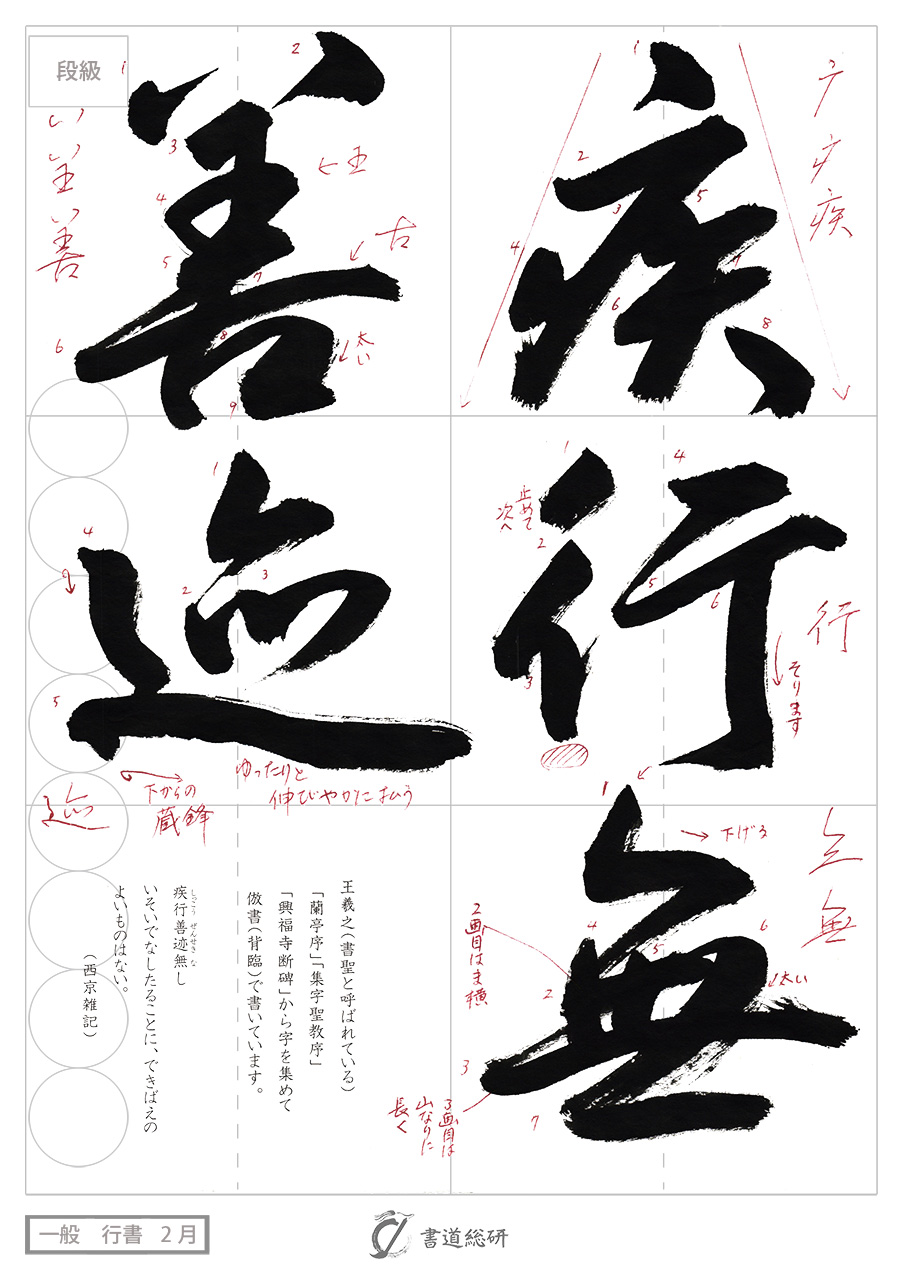 疾行無
善迹
段級
1
2
3
4
5
6
7
8
疾
1
2
3
4
5
6
止めて
次へ
行
そります
1
2
3
4
5
6
7
下げる
2画目はま横
太い
3画目は
山なりに
長く
無
1
2
3
4
5
6
7
8
9
王
古
太い
善
1
2
3
4
5
下からの
蔵鋒
ゆったりと
伸びやかにはらう
王羲之(書聖と呼ばれている)
「蘭亭序」「集字聖教序」
「興福寺断碑」から字を集めて
倣書(背臨)で書いています。
しっこう ぜんせき な
疾行善迹無し
いそいでなしたることに、できばえの
よいものはない。
(西京雑記)
一般 行書 2月
書道総研